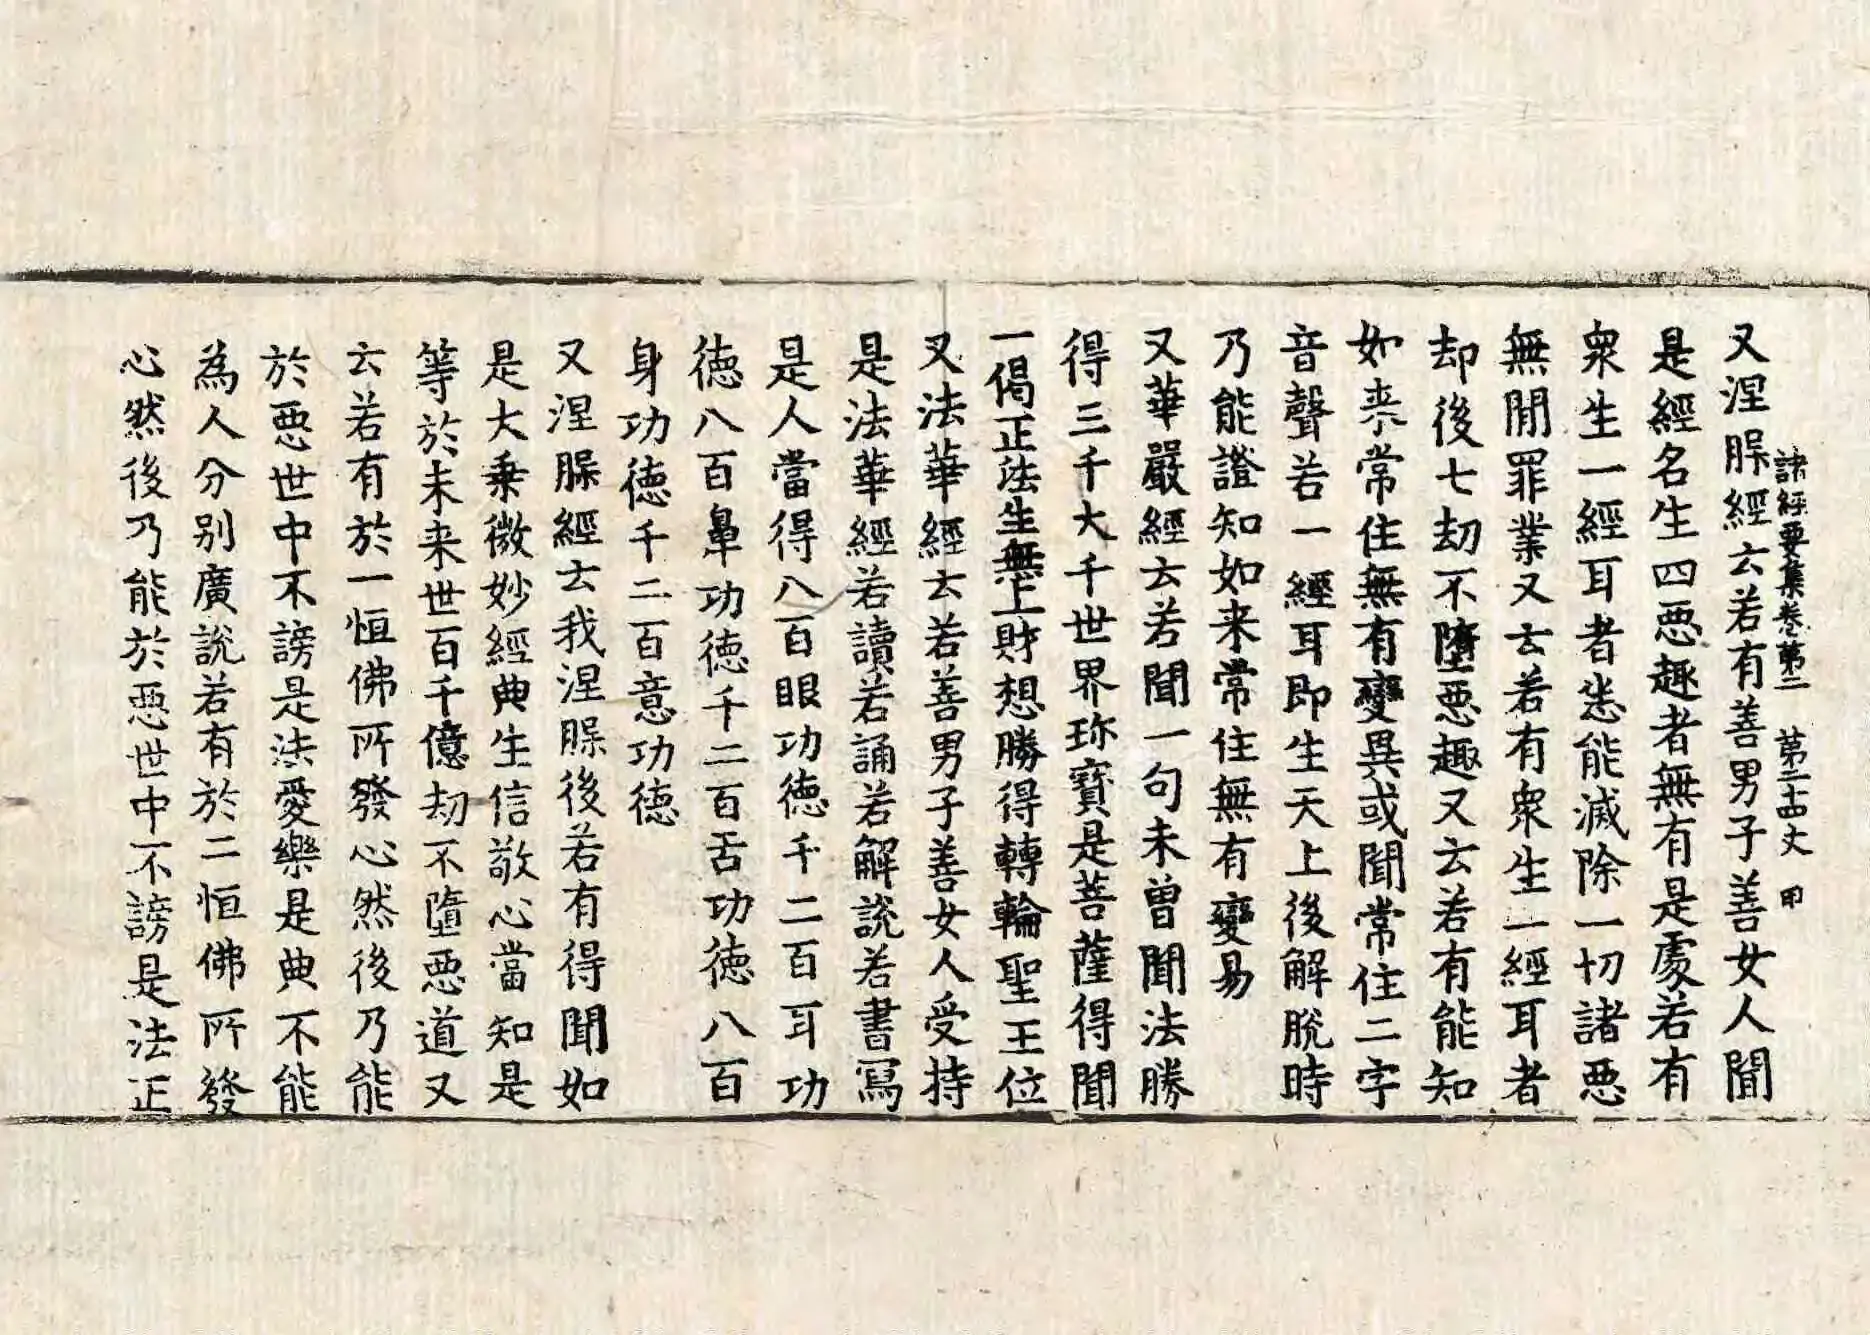 諸經要集卷第二　第二十四丈　甲
又涅槃經云若有善男子善女人聞
是經名生四惡趣者無有是處若有
衆生一經耳者悉能滅除一切諸惡
無間罪業又云若有衆生一經耳者
却後七劫不墮惡趣又云若有能知
如來常住無有變異或聞常住二字
音聲若一經耳即生天上後解脫時
乃能證知如来常住無有變易
又華嚴經云若聞一句未曾聞法勝
得三千大千世界珎寶是菩薩得聞
一偈正法生無上財想勝得轉輪聖王位
又法華經云若善男子善女人受持
是法華經若讀若誦若解說若書寫
是人當得八百眼功德千二百耳功
德八百鼻功德千二百舌功德八百
身功德千二百意功德
又涅槃經云我涅槃後若有得聞如
是大乗微妙經典生信敬心當知是
等於未来世百千億劫不墮惡道又
云若有於一恒佛所發心然後乃能
於惡世中不謗是法愛樂是典不能
為人分别廣說若有於二恒佛所發
心然後乃能於惡世中不謗是法正